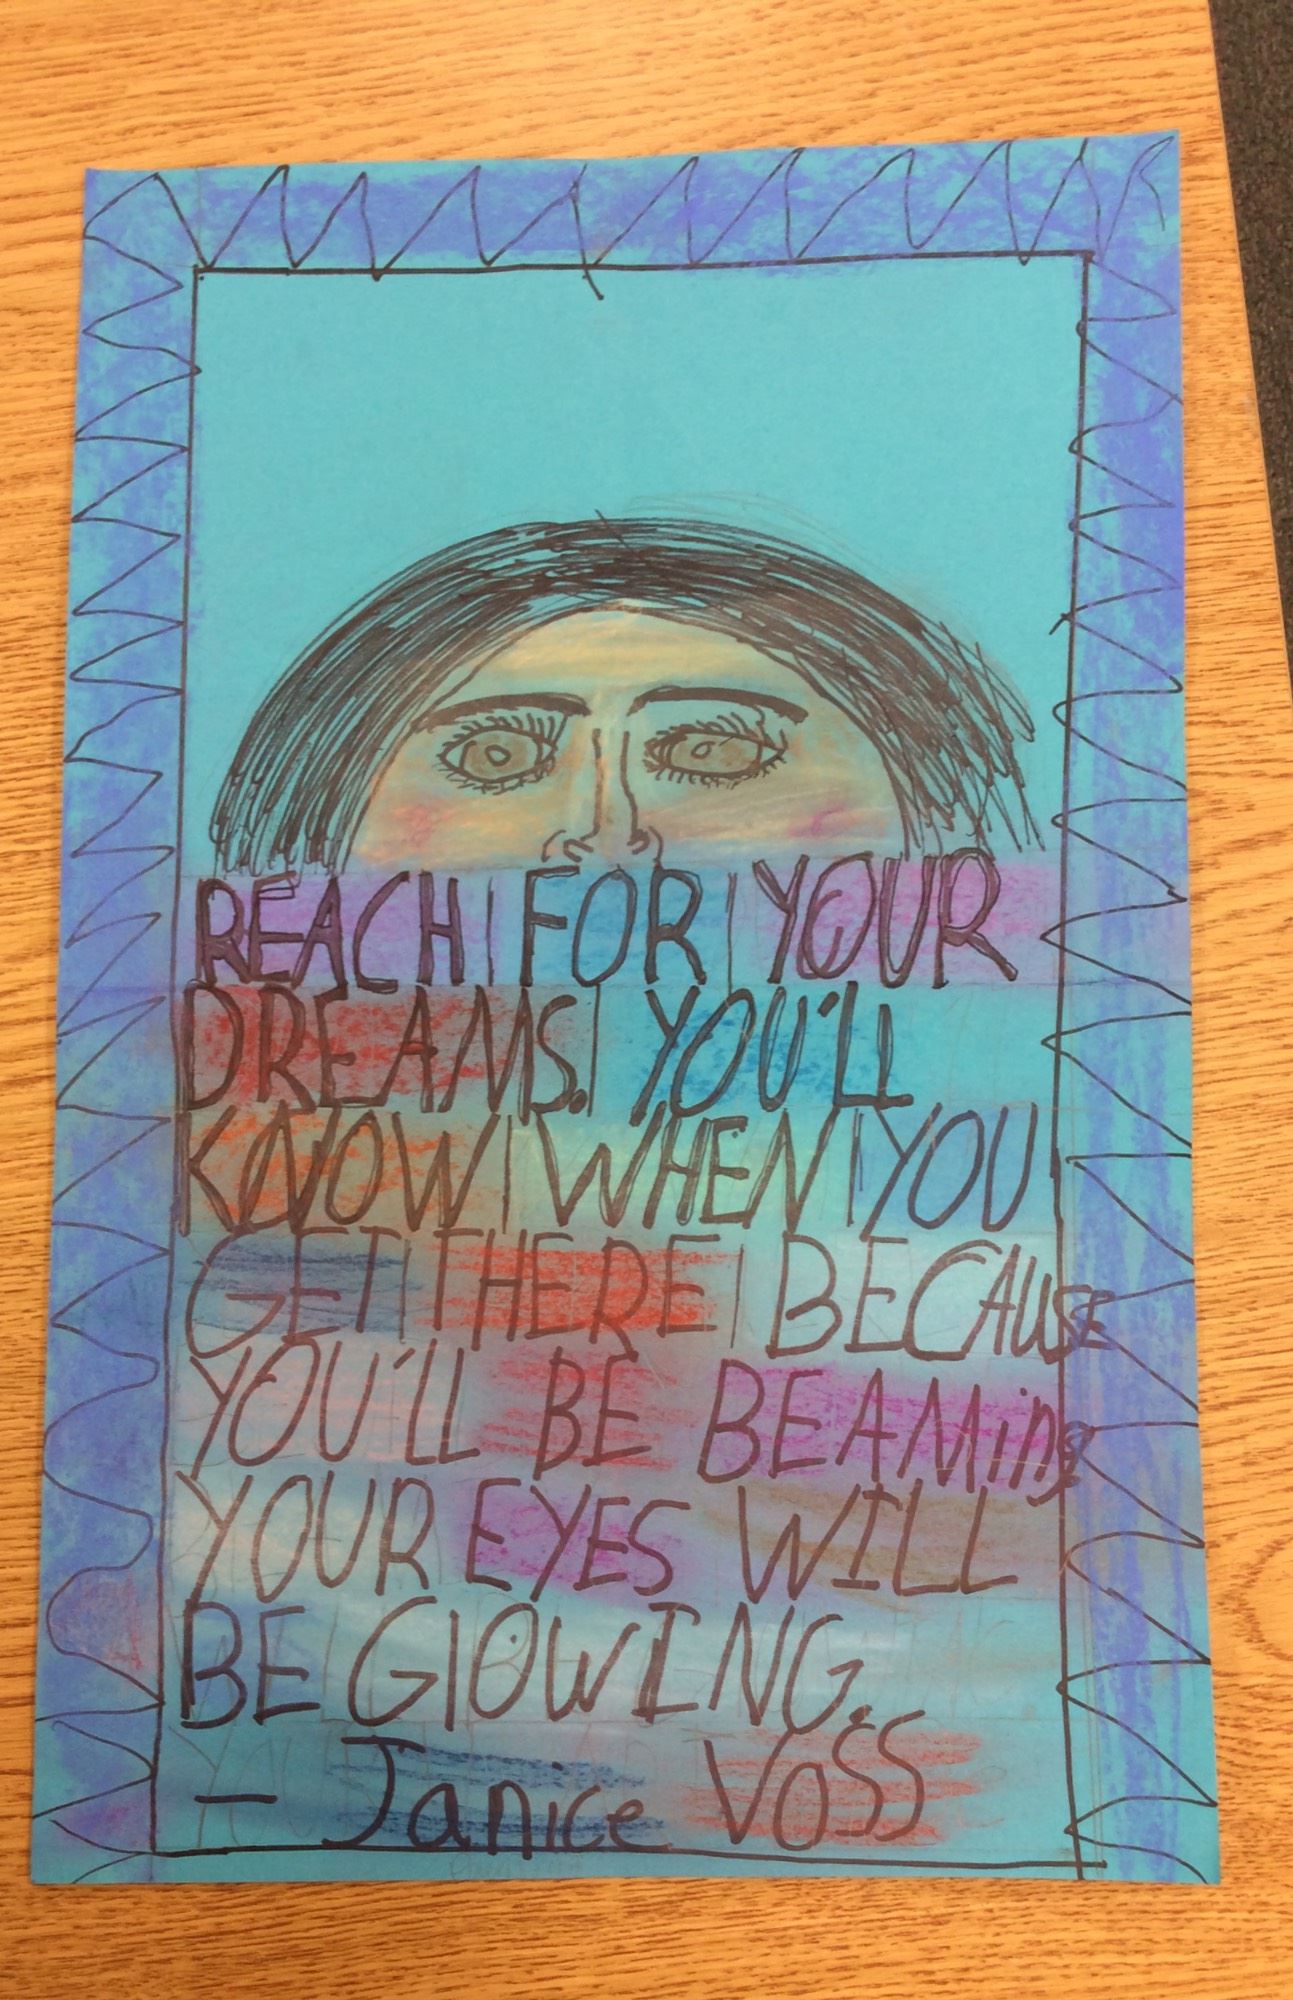 REACH FOR YOUR
DREAMS. YOU'LL
KNOW WHEN YOU
GET THERE BECAUSE
YOU'LL BE BEAMing
YOUR EYES WILL
BE GlOWING.
- Janice VOSS